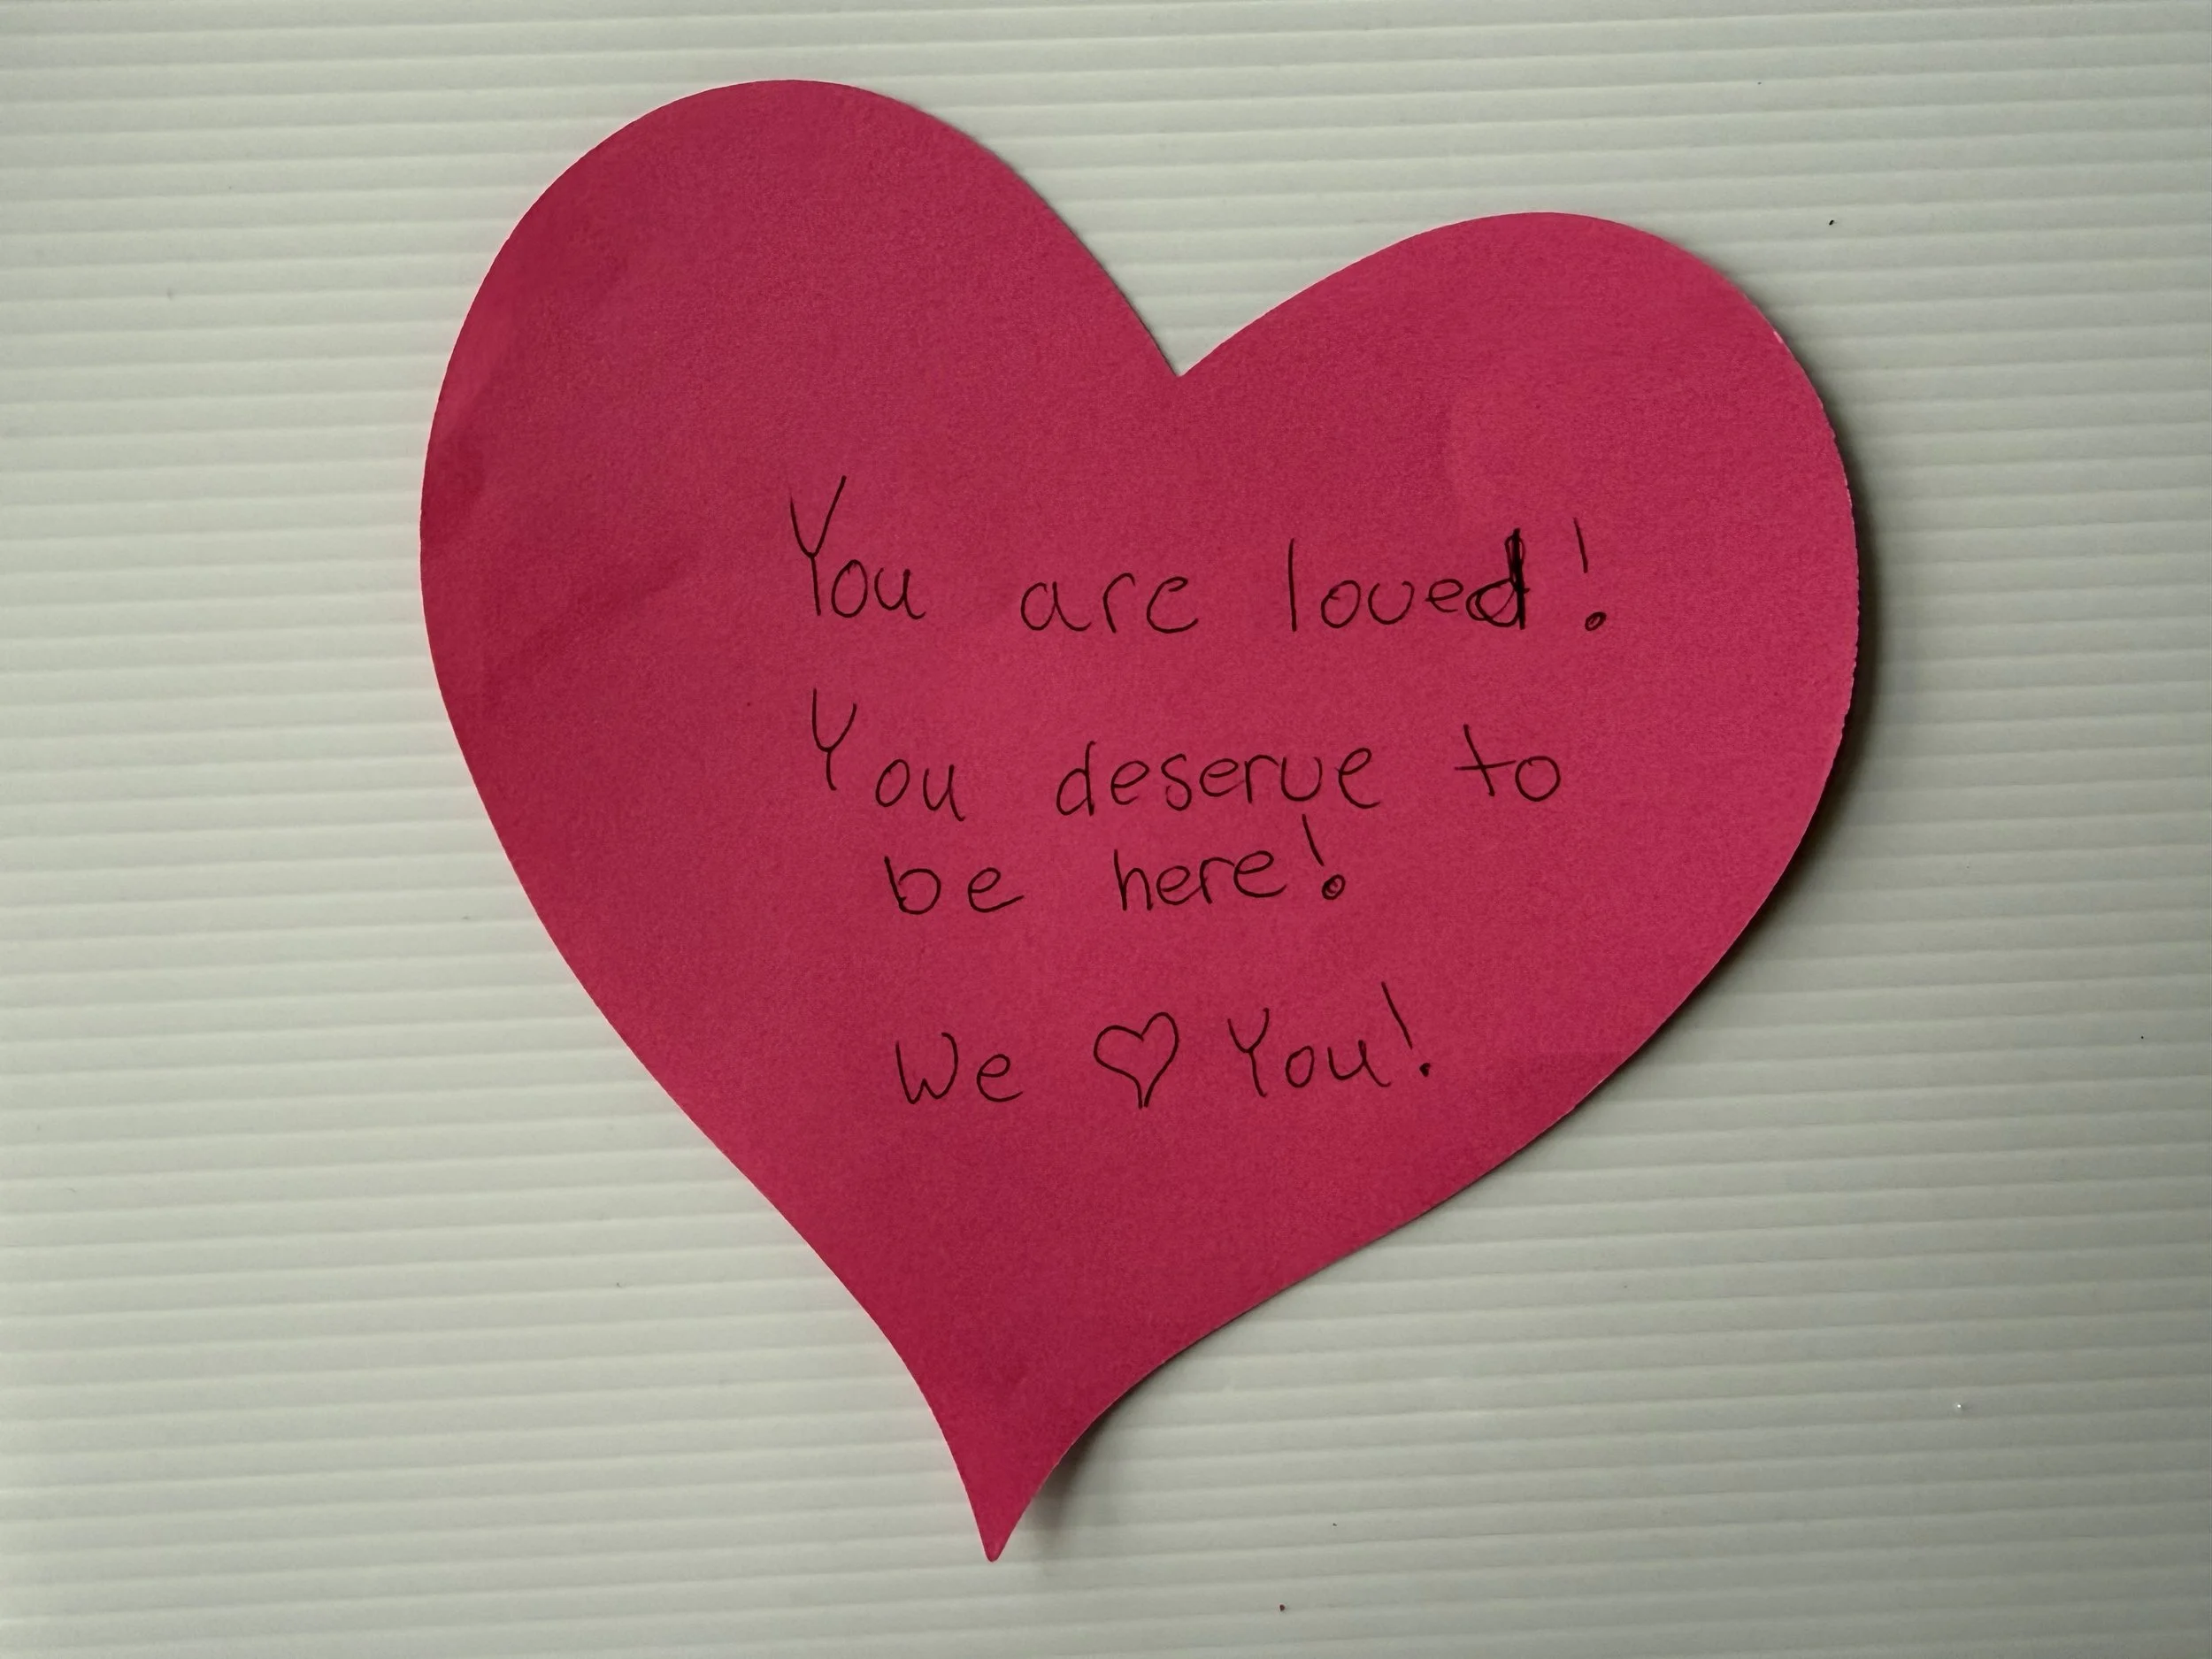 You are loved!
You deserve to
be here!
We ♡ You!